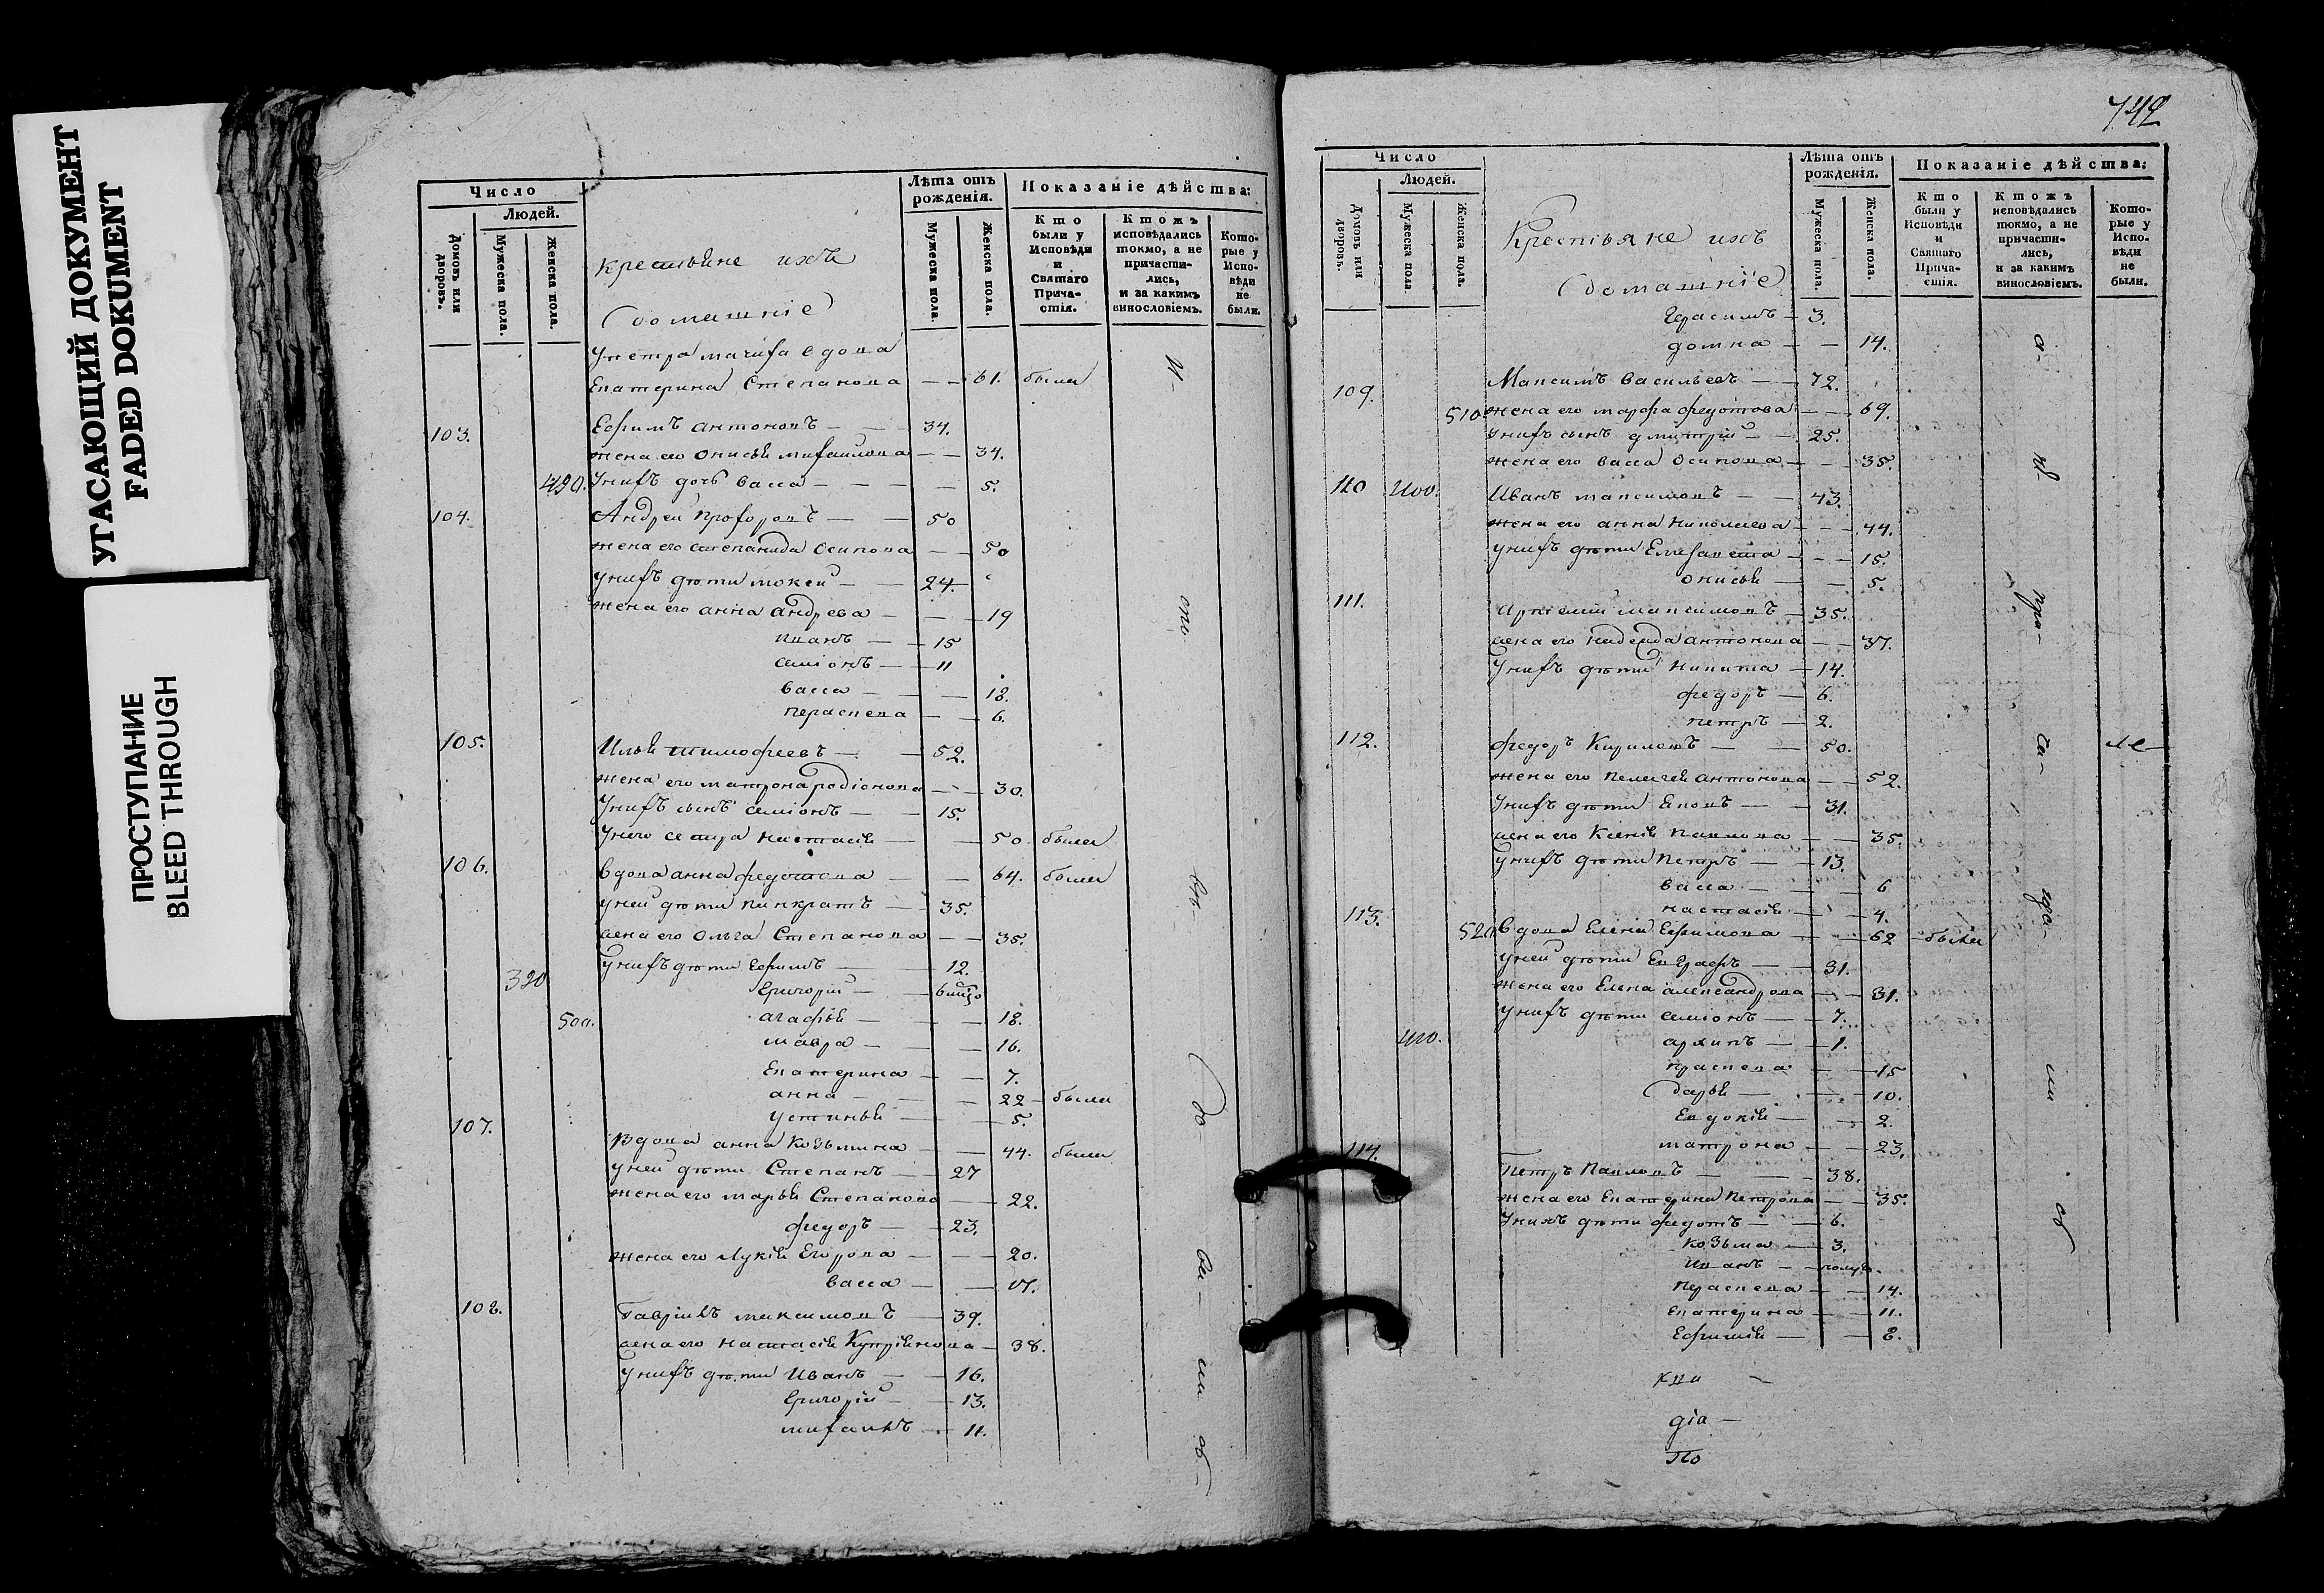 УГАСАЮЩИЙ ДОКУМЕНТ
FADED DOKUMENT
ПРОСТУПАНИЕ
BLEED THROUGH
Число
Людей.
Домовъ или дворовъ.
Мужеска пола.
Женска пола.
крестьяне ихъ
домашніе
Лѣта отъ рожденія.
Мужеска пола.
Женска пола.
Показаніе дѣйства:
Кто были у Исповѣди и Святаго Прича- стія.
Ктожъ исповѣдались токмо, а не причасти- лись, и за какимъ винословіемъ.
Кото- рые у Испо- вѣди не были.
вдова
Екатерина Степанова — — 61. были
103. Ефимъ антоновъ — — 34.
жена его Онисья михаилова — — 34.
490. Унихъ дочь васса — — — 5.
104. Андрей прохоровъ — — 50
жена его степанида Осипова — — 50
унихъ дѣти мокей — — 24.
жена его анна андрева — — 19
иванъ — 15
семіонъ — 11
васса — — 18.
параскева — — 6.
105. Илья тимофеевъ — — 52.
жена его матрона родіонова — — 30.
Унихъ сынъ семіонъ — — 15.
Унего сестра настасія — — 50. были
106. вдова анна федотова — — 64. были
уней дѣти панкратъ — 35.
жена его Ольга Степанова — — 35.
320 унихъ дѣти Ефимъ — 12.
Григорій —
500. агафья — — 18.
мавра — — 16.
Екатерина — — 7.
анна — — 22 — были
устинья — — 5.
107. Вдова анна Козьмина — — 44. были
уней дѣти Степанъ — 27
жена его марья Степанова — — 22.
федоръ — 23.
жена его Лукія Егорова — — 20.
васса — —
108. Гаврилъ максимовъ — 39.
жена его настасія Купріянова — 38.
Унихъ дѣти Иванъ — 16.
Григорій — 13.
михаилъ — 11.
742
Число
Людей.
Домовъ или дворовъ.
Мужеска пола.
Женска пола.
Крестьяне ихъ
домашніе
Лѣта отъ рожденія.
Мужеска пола.
Женска пола.
Показаніе дѣйства:
Кто были у Исповѣди и Святаго Прича- стія.
Ктожъ исповѣдались токмо, а не причасти- лись, и за какимъ винословіемъ.
Кото- рые у Испо- вѣди не были.
Герасимъ — 3.
домна — — 14.
109. Максимъ васильевъ — — 72.
510 жена его марфа федотова — — 69.
унихъ сынъ дмитрій — — 25.
жена его васса Осипова — — 35.
110 400. Иванъ максимовъ — — 43.
жена его анна николаева — — 44.
унихъ дѣти Елизавета — — 15.
онисья — — 5.
111. Артемій максимовъ — 35.
жена его надежда антонова — — 37.
Унихъ дѣти никита — 14.
федоръ — 6.
петръ — 2.
112. федоръ Кириловъ — — 50.
жена его пелагея антонова — — 52.
Унихъ дѣти — 31.
жена его Ксенія павлова — — 35.
унихъ дѣти петръ — 13.
васса — — 6
настасія — — 4.
113. 520 Вдова Елена Ефимова — — 62 — были
уней дѣти Евграфъ — — 31.
жена его Елена александрова — — 31.
унихъ дѣти семіонъ — — 7.
410. архипъ — 1.
праскева — — 15
дарья — — 10.
Евдокія — — 2.
матрона — — 23.
114. Петръ Павловъ — — 38.
жена его Екатерина петрова — — 35.
Унихъ дѣти федотъ — — 6.
козьма — 3.
Иванъ —
параскева — — 14.
Екатерина — — 11.
Ефимія — — 8.
діа —